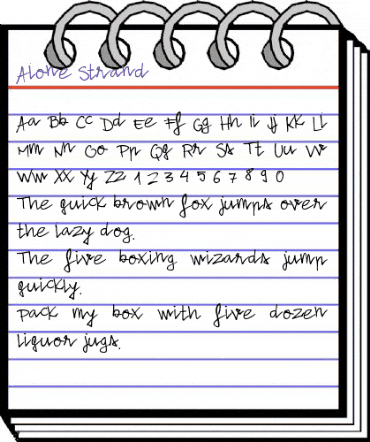 Alone Strand
Aa Bb Cc Dd Ee Ff Gg Hh Ii Jj Kk Ll
Mm Nn Oo Pp Qq Rr Ss Tt Uu Vv
Ww Xx Yy Zz 1 2 3 4 5 6 7 8 9 0
The quick brown fox jumps over
the lazy dog.
The five boxing wizards jump
quickly.
Pack my box with five dozen
liquor jugs.